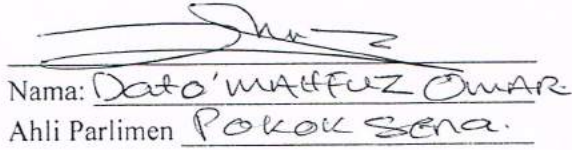 Nama: Dato' MAHFUZ OMAR.
Ahli Parlimen POKOK SENA.